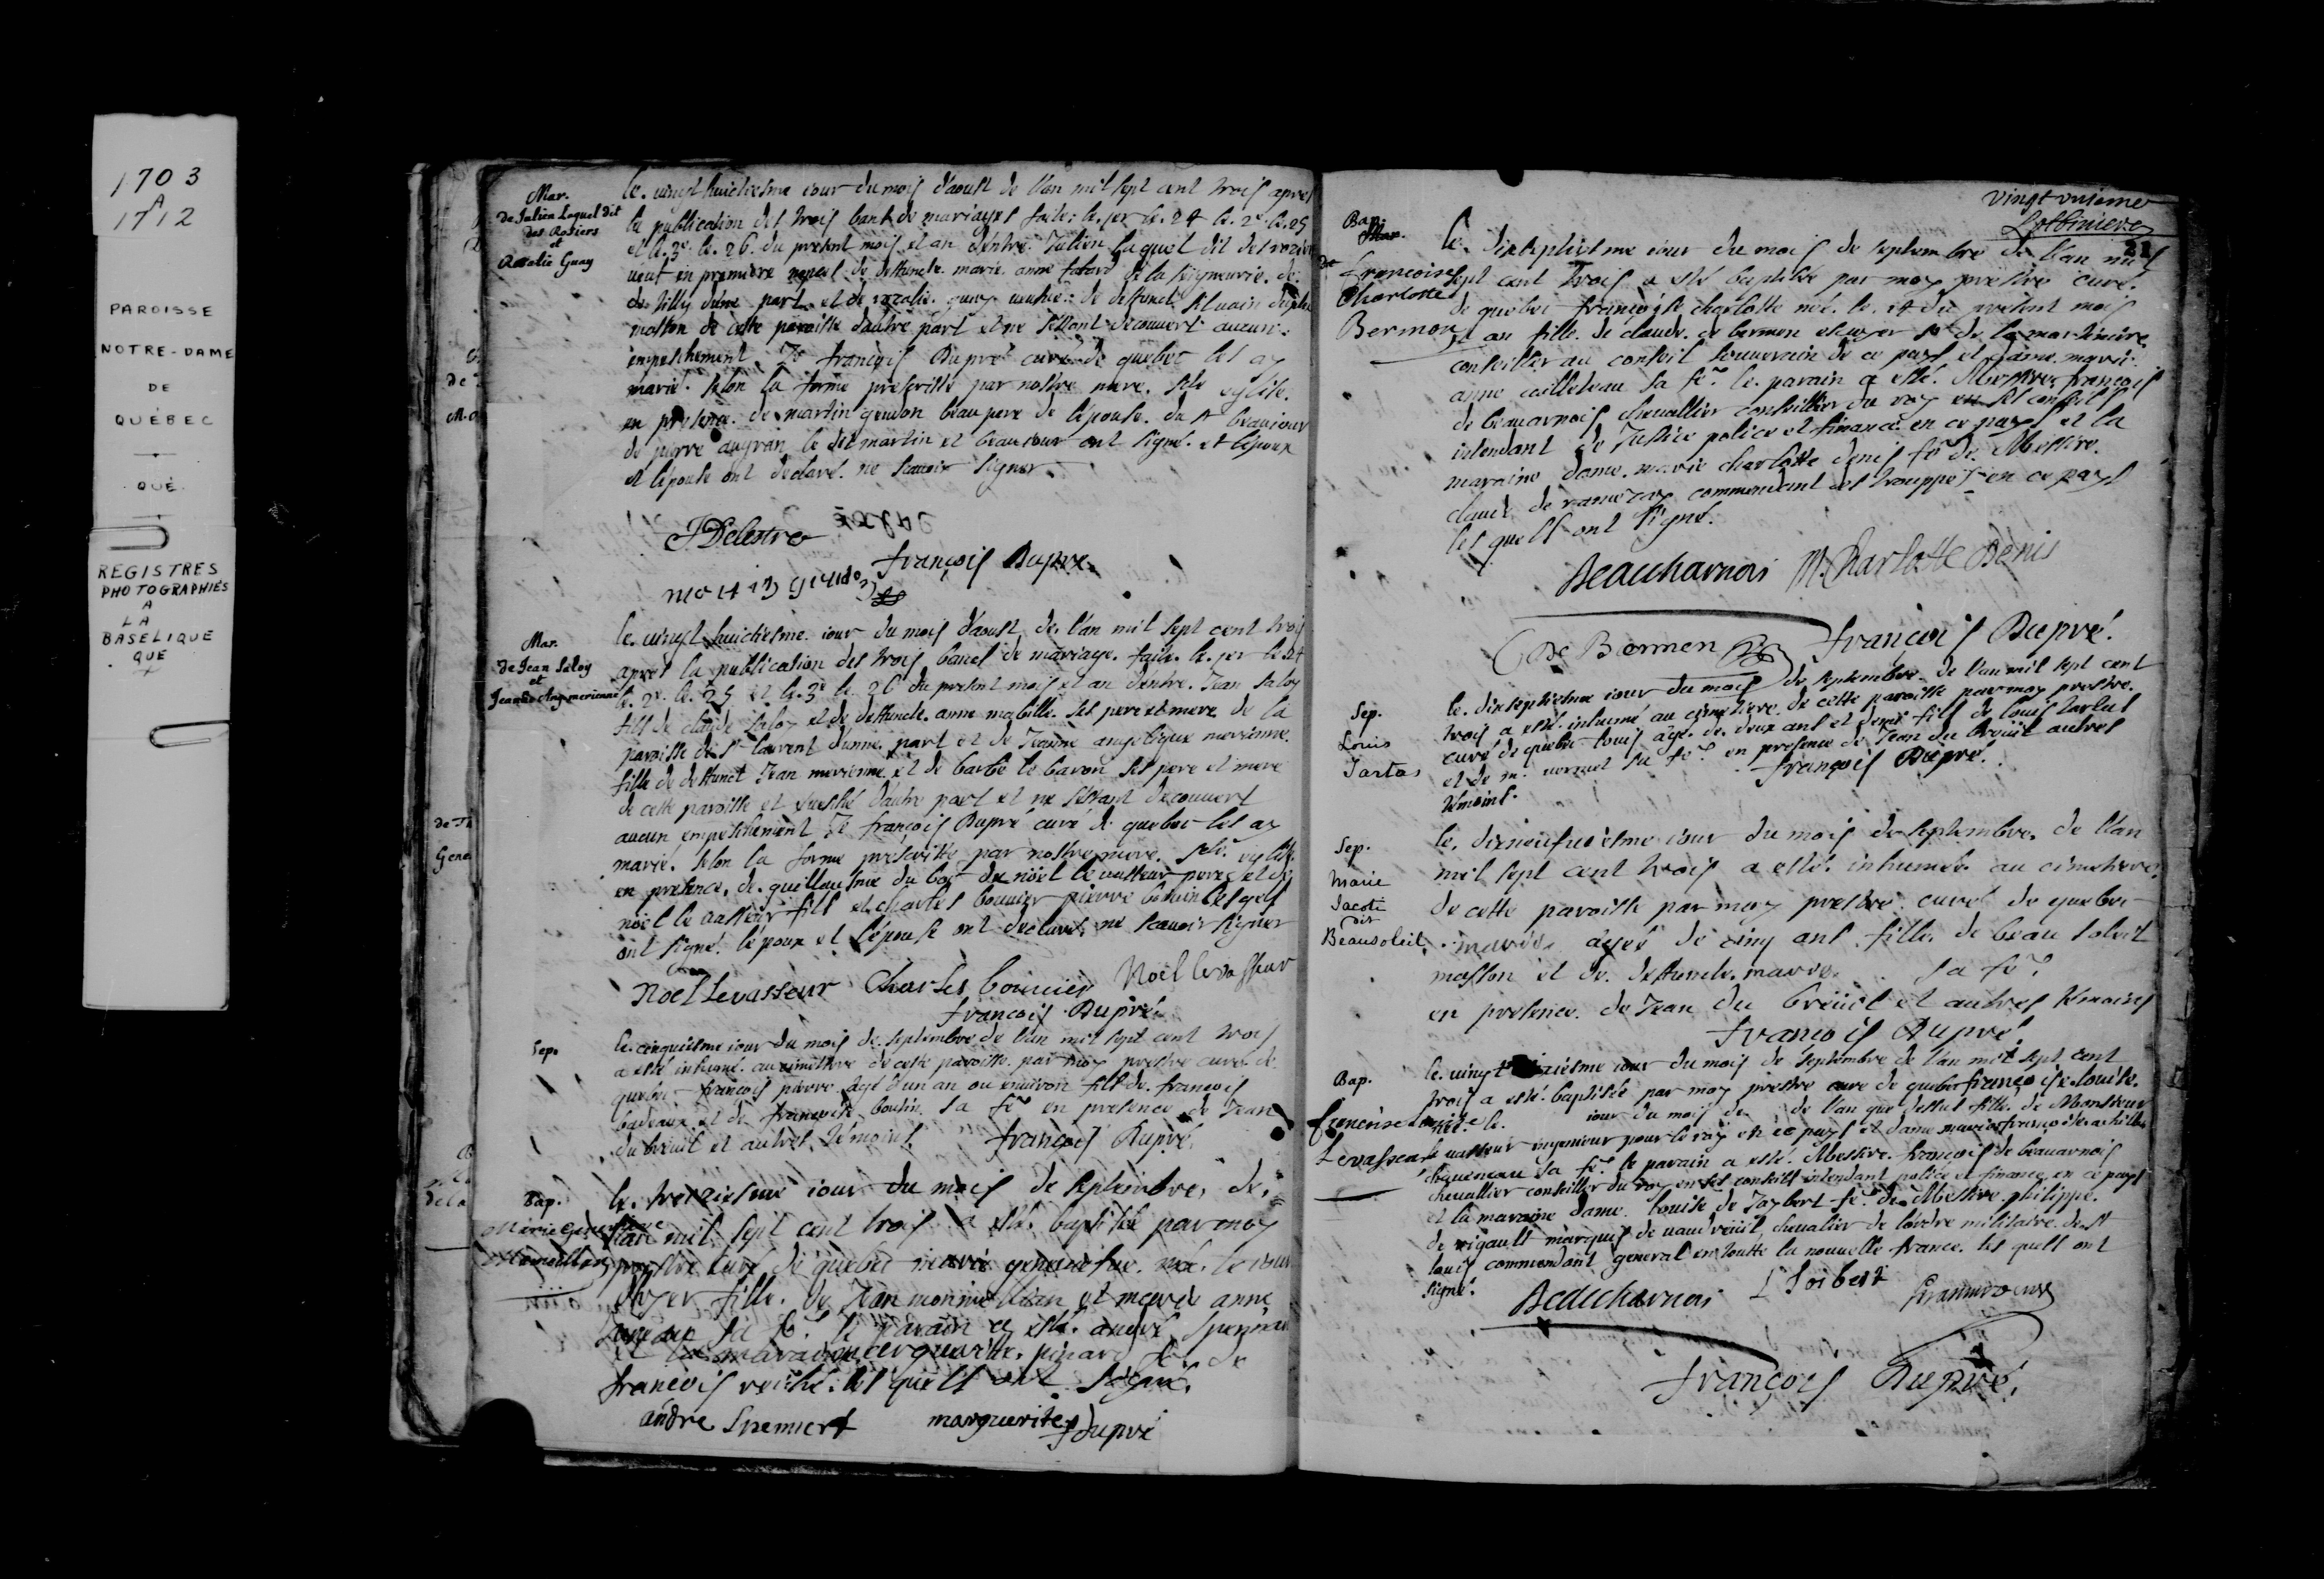 1703
A
1712
PAROISSE
NOTRE-DAME
DE
QUÉBEC
QUÉ.
REGISTRES
PHOTOGRAPHIÉS
A
LA
BASELIQUE
QUE
Mar.
de Julien Laquel dit
des Rosiers
et
Rosalie Guay
le vingt huictiesme iour du mois d'aoust de l'an mil sept cent trois apres
la publication des trois bans de mariages faite le 1er le 24 le 2e le 25
et le 3e le 26 du present mois et an d'entre Julien laquel dit des rozier
veuf en premiere nopces de deffuncte marie anne tabard de la seigneurie de
de tilly d'une part et de rozalie guay veufve de deffunct
masson de cette paroisse d'autre part et ne s'estant decouvert aucun
empeschement Je françois Dupré curé de quebec les ay
marié selon la forme prescritte par nostre mere Ste eglise
en presence de martin geudon beau pere de l'epouse du Sr beaujour
de pierre augran le dit martin et beaujour ont signé et l'epoux
et l'epouse ont declaré ne scavoir signer
JDelestre
françois Dupré
martin geudo
Mar.
de Jean Saloy
et
Jeanne Ang. merienne
le vingt huictiesme iour du mois d'aoust de l'an mil sept cent trois
apres la publication des trois bancs de mariage faite le 1er le 24
le 2e le 25 et le 3e le 26 du present mois et an d'entre Jean saloy
fils de claude saloy et de deffuncte anne mabille ses pere et mere de la
paroisse de St laurent d'une part et de Jeanne angelique merienne
fille de deffunct Jean merienne et de barbe le baron ses pere et mere
de cette paroisse et evesché d'autre part et ne s'estant decouvert
aucun empeschement Je françois Dupré curé de quebec les ay
marié selon la forme prescritte par nostre mere Ste eglise
en presence de guilleausme du boc de nöel le vasseur pere et de
nöel le vasseur fils et charles bouvier pierre lesquels
ont signé l'epoux et l'epouse ont declaré ne scavoir signer
Noel Levasseur Charles bouuier Noel levasseur
françois Dupré
Sep.
le cinquiesme iour du mois de septembre de l'an mil sept cent trois
a esté inhumé au cimetiere de cette paroisse par moy prestre curé de
quebec françois pierre agé d'un an ou environ fils de françois
badeaux et de françoise boutin sa fe en presence de Jean
du breuil et autres témoins françois Dupré
Bap.
Marie Genevieve
le treiziesme iour du mois de septembre de
l'an mil sept cent trois a esté baptisée par moy
prestre curé de quebec marie genevieve née le iour
d'hyer fille de Jean monmellian et marie anne
sa fe le parain a esté andré spennert
et la maraine marguerite pinard fe de
françois reiche lesquels ont signé
andre Spennert marguerite
fdupré
vingt unieme
Lotbiniere
21
Bap.
Mar.
de
Francoise
Charlotte
Bermon
le dixseptiesme iour du mois de septembre de l'an mil
sept cent trois a esté baptisée par moy prestre curé
de quebec françoise charlotte née le 14 du present mois
et an fille de claude de bermen escuyer Sr de la martiniere
conseiller au conseil souverain de ce pays et dame marie
anne cailleteau sa fe le parain a esté Messire françois
de beaucarnois chevallier conseiller du roy en ses conseils
intendant de Justice police et finance en ce pays et la
maraine dame marie charlotte denis fe de Messire
claude de ramezay commendant des trouppes en ce pays
lesquels ont signé.
Beauharnois M. Charlotte Denis
De Bermen françois Dupré.
Sep.
Louis
Tartas
le dixseptiesme iour du mois de septembre de l'an mil sept cent
trois a esté inhumé au cimetiere de cette paroisse par moy prestre
curé de quebec louis agé de deux ans et demi fils de louis tartas
et de sa fe en presence de Jean du breuil autres
témoins. françois Dupré.
Sep.
Marie
Jacoti
dit
Beausoleil
le dixneufviesme iour du mois de septembre de l'an
mil sept cent trois a esté inhumée au cimetiere
de cette paroisse par moy prestre curé de quebec
marie agée de cinq ans fille de beau soleil
masson et de deffuncte marie sa fe
en presence de Jean du breüil et autres témoins
françois Dupré.
Bap.
francoise Louise
Levasseur
le vingt iour du mois de septembre de l'an mil sept cent
trois a esté baptisée par moy prestre curé de quebec françoise louise
née le iour du mois de de l'an que dessus fille de Monsieur
le vasseur ingenieur pour le roy en ce pays et dame marie françoise
chevneau sa fe le parain a esté Messire françois de beaucarnois
chevallier conseiller du roy en ses conseils intendant police et finance en ce pays
et la maraine dame louise de Joybert fe de Messire philippe
de rigault marquis de vaudreuil chevalier de l'ordre militaire de St
louis commendant general en toutte la nouvelle france lesquels ont
signé
Beauharnois L Joibert
françois Dupré.